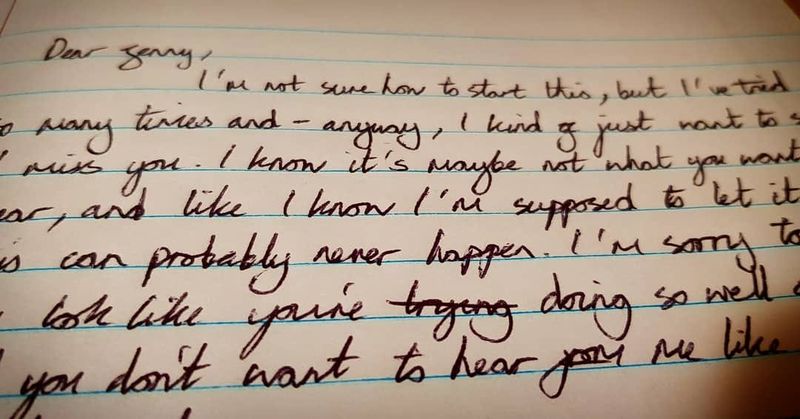 Dear Jenny,
I'm not sure how to start this, but I've tried
many times and – anyway, I kind of just want to s
miss you. I know it's maybe not what you want
ear, and like I know I'm supposed to let it
is can probably never happen. I'm sorry to
look like you're trying doing so well
you don't want to hear me like